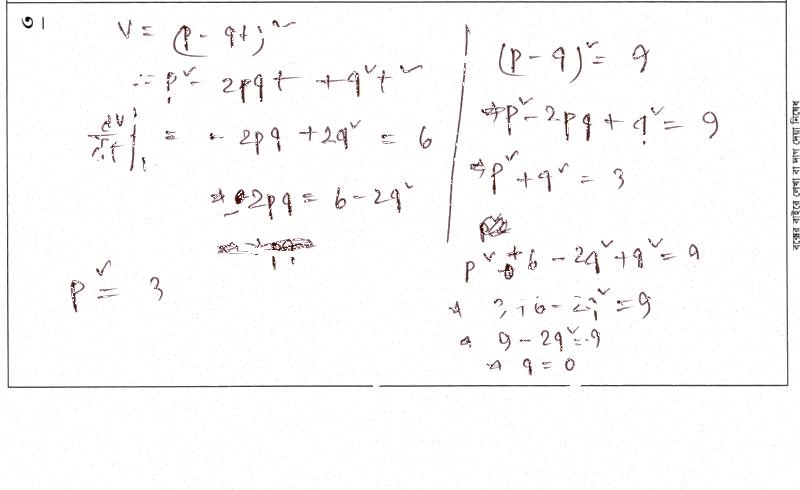 ৩।
V = (p - qt)²
∴ p² - 2pqt + q²t²
dV/dt]₁ = - 2pq + 2q² = 6
⇒ -2pq = 6 - 2q²
p² = 3
(p - q)² = 9
⇒ p² - 2pq + q² = 9
⇒ p² + q² = 3
p² + 6 - 2q² + q² = 9
⇒ 3 + 6 - 2q² = 9
⇒ 9 - 2q² = 9
⇒ q = 0
বক্সের বাইরে লেখা বা দাগ দেয়া নিষেধ